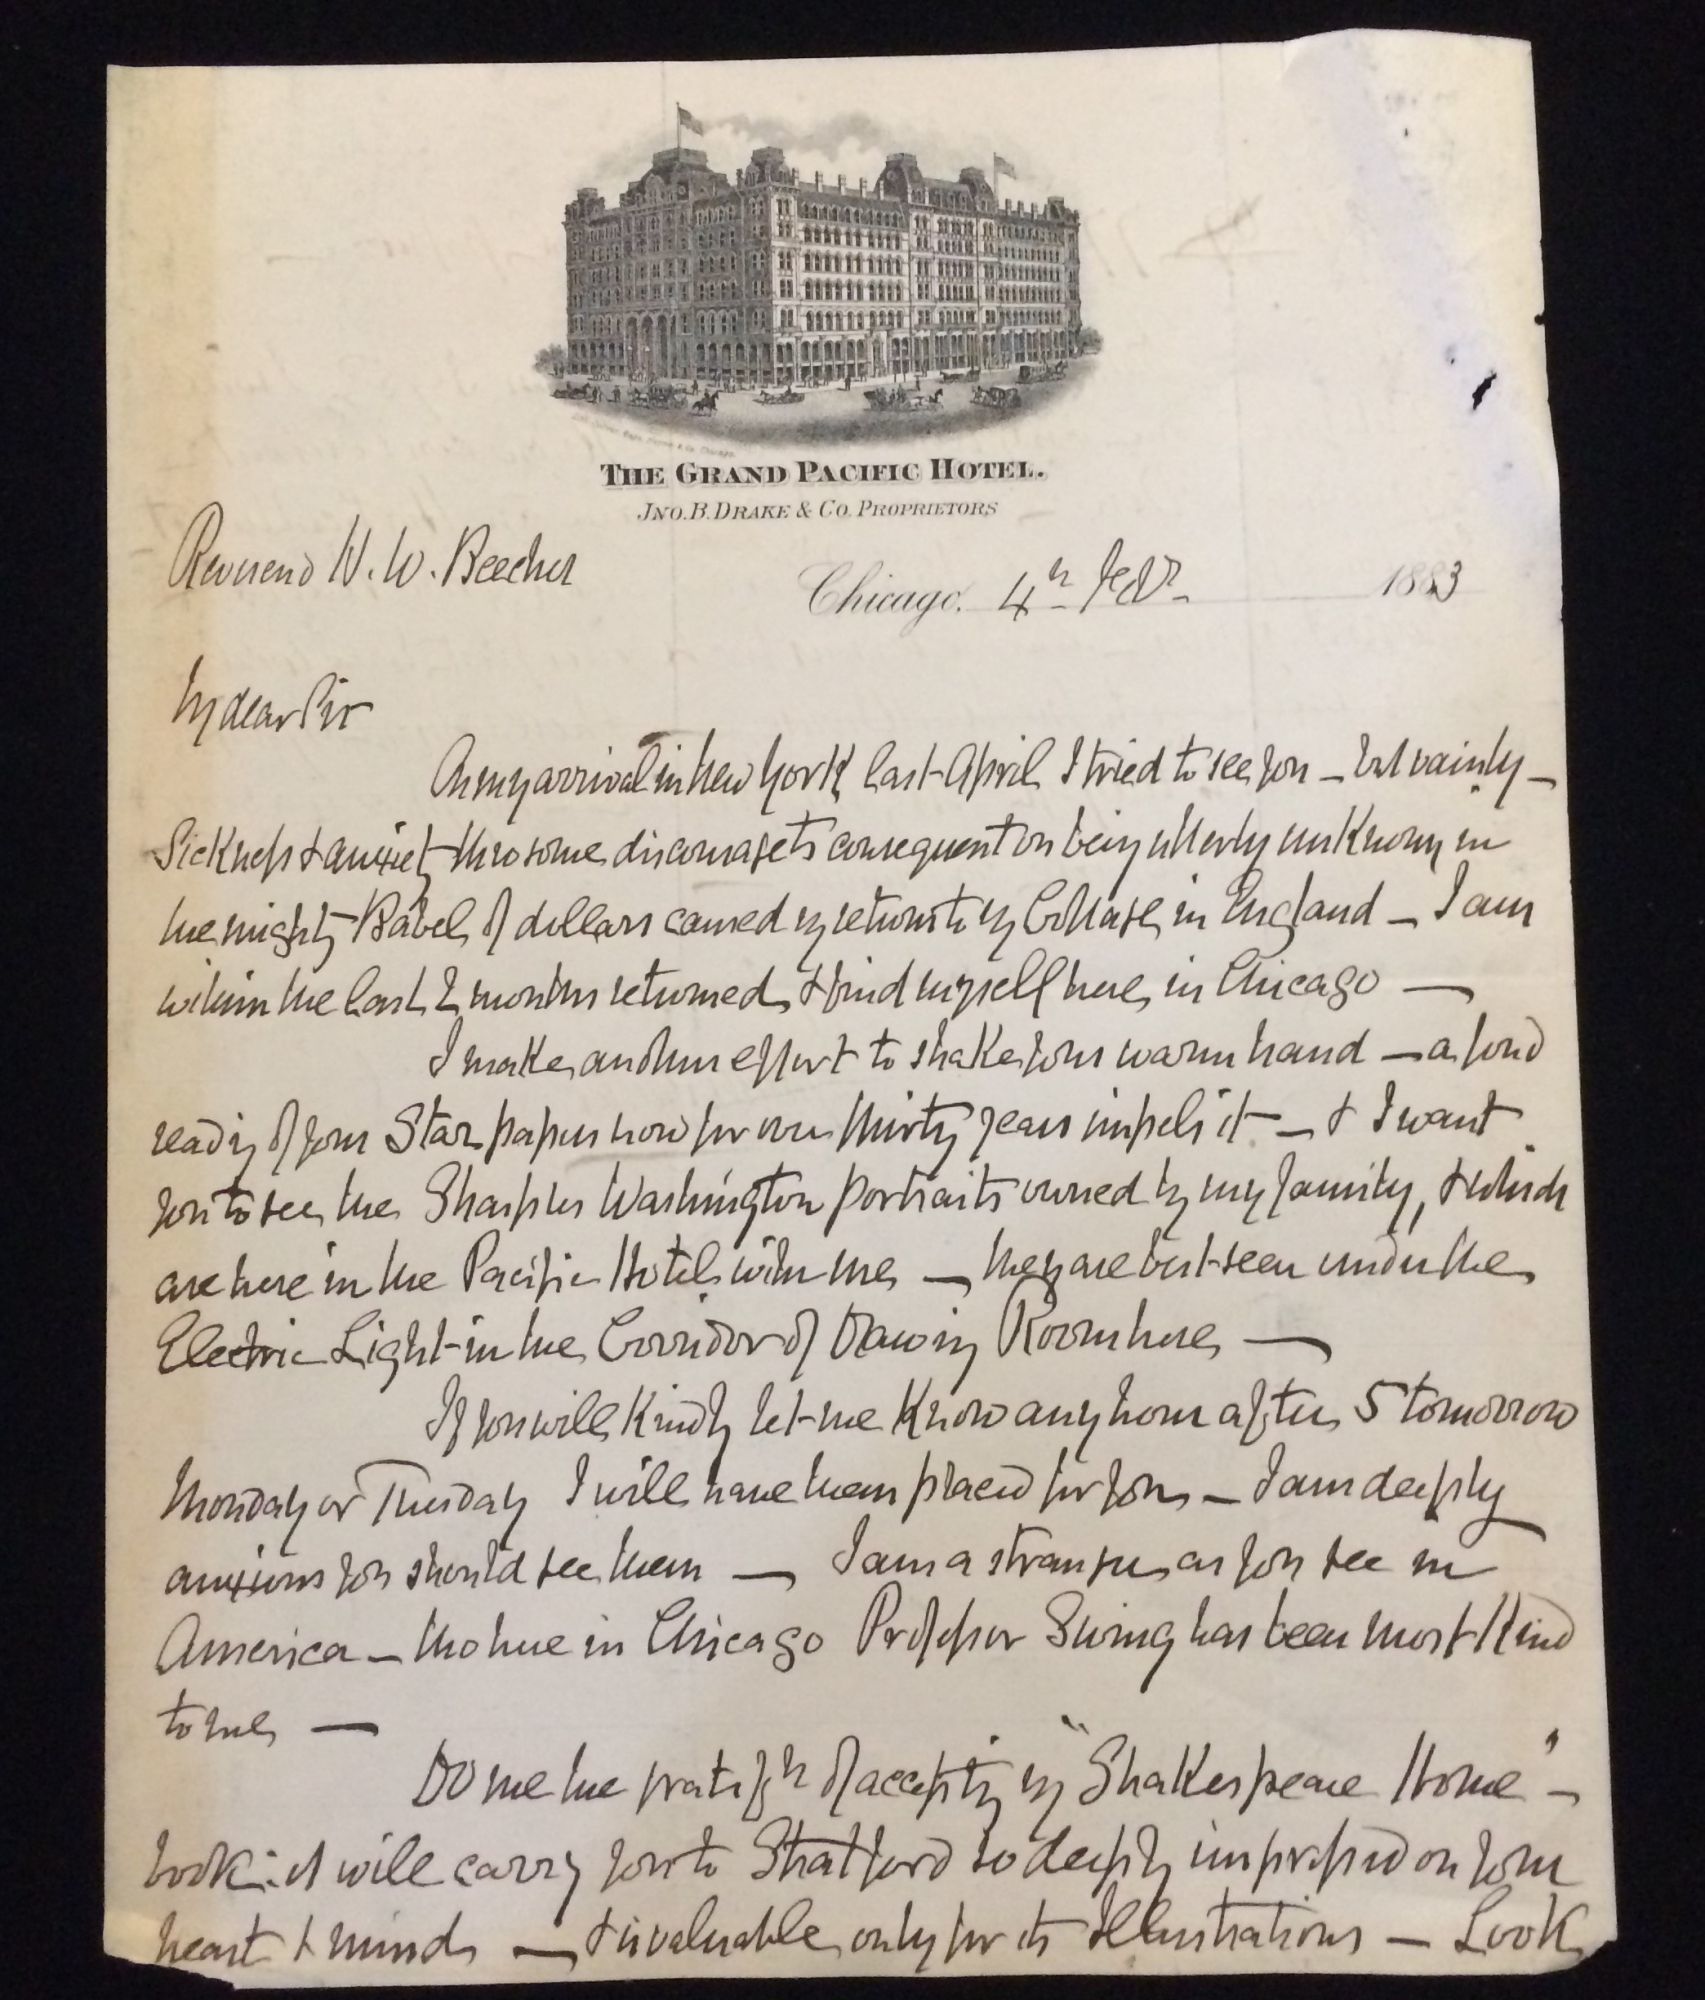 THE GRAND PACIFIC HOTEL.
JNO. B. DRAKE & CO. PROPRIETORS
Reverend H. W. Beecher
Chicago, 4th Febr 1883
My dear Sir
On my arrival in New York last April I tried to see you – but vainly –
Sickness & anxiety thro some discouragets consequent on being utterly unknown in
the mighty Babel of dollars caused my return to my Cottage in England – I am
within the last 2 months returned & find myself here in Chicago —
I make another effort to shake your warm hand – a fond
readg of your Star papers now for over thirty years impels it – & I want
you to see the Sharples Washington portraits owned by my family, & which
are here in the Pacific Hotel with me – they are best seen under the
Electric Light in the Corridor of Drawing Room here —
If you will kindly let me know any hour after 5 tomorrow
Monday or Tuesday I will have them placed for you – I am deeply
anxious you should see them – I am a stranger as you see in
America – tho here in Chicago Professor Swing has been most kind
to me —
Do me the gratifn of acceptg my "Shakespeare Home" –
book: it will carry you to Stratford so deeply impressed on your
heart & mind – & is valuable only for its Illustrations – Look